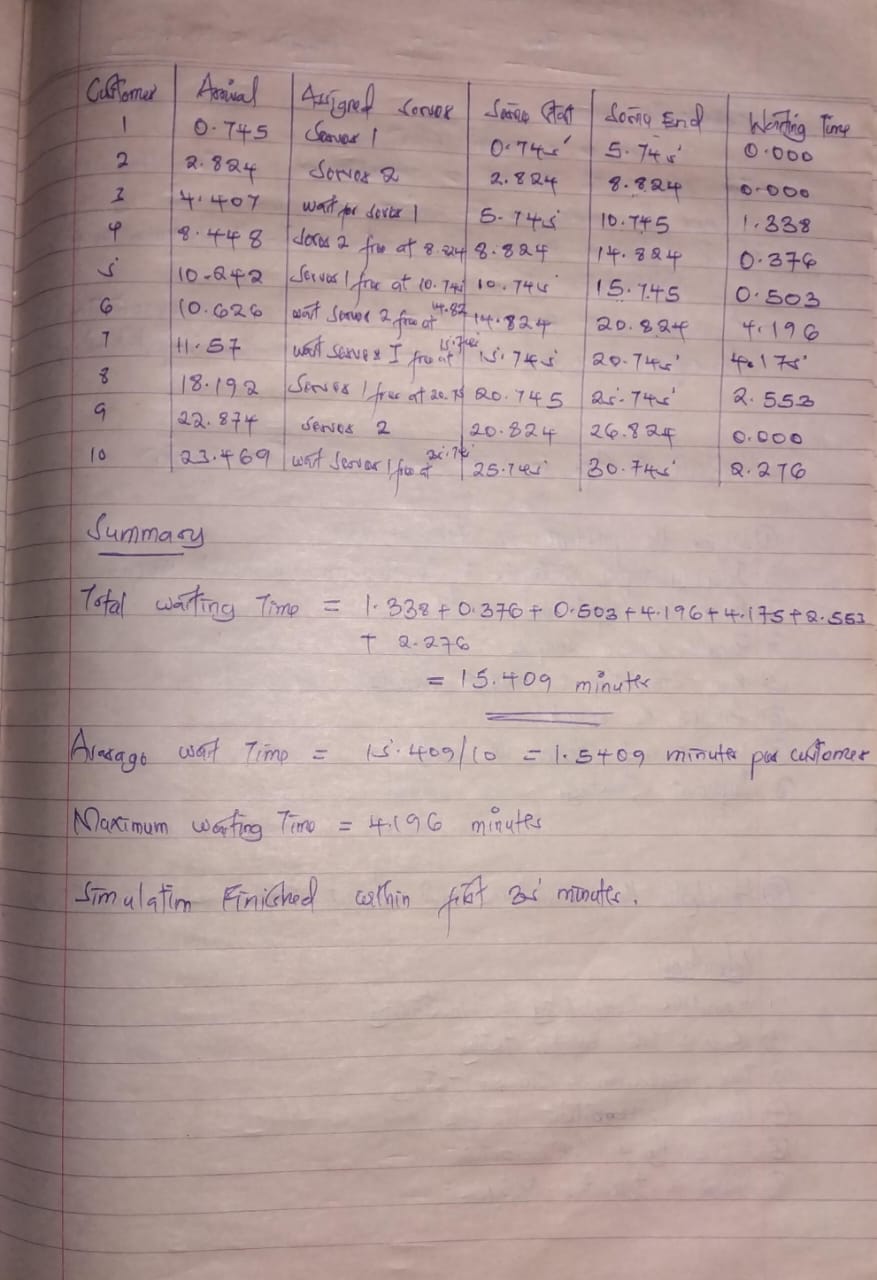 Customer Arrival Assigned Server Service Start Service End Waiting Time
1 0.745 Server 1 0.745 5.745 0.000
2 2.824 Server 2 2.824 8.824 0.000
3 4.407 wait for server 1 5.745 10.745 1.338
4 8.448 Server 2 free at 8.824 8.824 14.824 0.376
5 10.242 Server 1 free at 10.745 10.745 15.745 0.503
6 10.626 wait Server 2 free at 14.82 14.824 20.824 4.196
7 11.57 wait Server I free at 15.745 15.745 20.745 4.175
8 18.192 Server 1 free at 20.75 20.745 25.745 2.553
9 22.874 Server 2 20.824 26.824 0.000
10 23.469 wait Server 1 free at 25.745 30.745 2.276
Summary
Total waiting Time = 1.338 + 0.376 + 0.503 + 4.196 + 4.175 + 2.553
+ 2.276
= 15.409 minutes
Average wait Time = 15.409/10 = 1.5409 minutes per customer
Maximum waiting Time = 4.196 minutes
Simulation Finished within first 35 minutes.